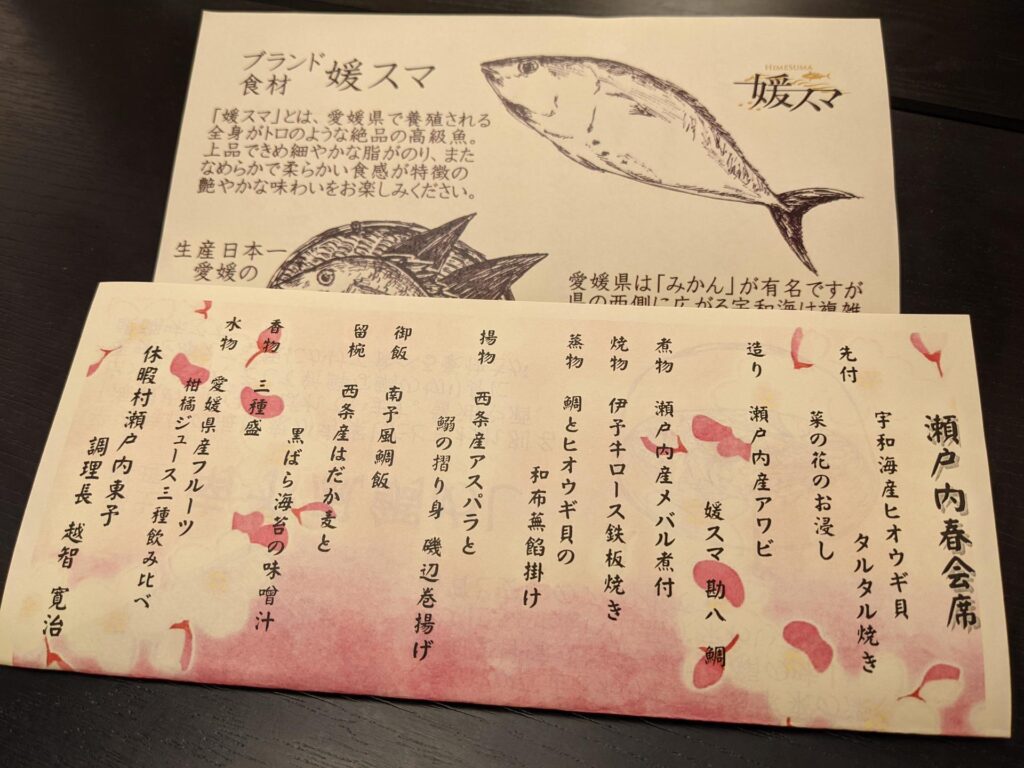 ブランド
食材
媛スマ
HIMESUMA
媛スマ
「媛スマ」とは、愛媛県で養殖される
全身がトロのような絶品の高級魚。
上品できめ細やかな脂がのり、また
なめらかで柔らかい食感が特徴の
艶やかな味わいをお楽しみください。
生産日本一
愛媛の
愛媛県は「みかん」が有名ですが
県の西側に広がる宇和海は複雑
瀬戸内春会席
先付
宇和海産ヒオウギ貝
タルタル焼き
菜の花のお浸し
造り 瀬戸内産アワビ
媛スマ 勘八 鯛
煮物 瀬戸内産メバル煮付
焼物 伊予牛ロース鉄板焼き
蒸物 鯛とヒオウギ貝の
和布蕪餡掛け
揚物 西条産アスパラと
鰯の摺り身 磯辺巻揚げ
御飯 南予風鯛飯
留椀 西条産はだか麦と
黒ばら海苔の味噌汁
香物 三種盛
水物 愛媛県産フルーツ
柑橘ジュース三種飲み比べ
休暇村瀬戸内東予
調理長 越智 寛治